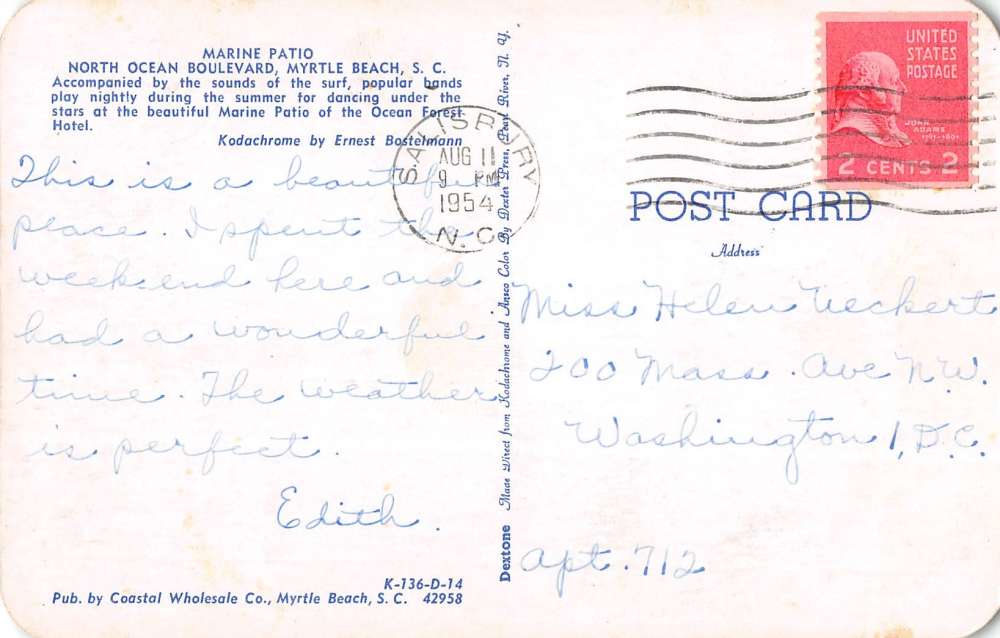 MARINE PATIO
NORTH OCEAN BOULEVARD, MYRTLE BEACH, S. C.
Accompanied by the sounds of the surf, popular bands
play nightly during the summer for dancing under the
stars at the beautiful Marine Patio of the Ocean Forest
Hotel.
Kodachrome by Ernest Bostelmann
This is a beautiful
place. I spent the
weekend here and
had a wonderful
time. The weather
is perfect.
Edith.
K-136-D-14
Pub. by Coastal Wholesale Co., Myrtle Beach, S. C. 42958
Dextone Made Direct from Kodachrome and Ansco Color By Dexter Press, Pearl River, N. Y.
SALISBURY
AUG 11
9 PM
1954
N.C.
UNITED
STATES
POSTAGE
JOHN
ADAMS
1797-1801
2 CENTS 2
POST CARD
Address
Miss Helen Ueckert
200 Mass. Ave N.W.
Washington 1, D.C.
Apt. 712